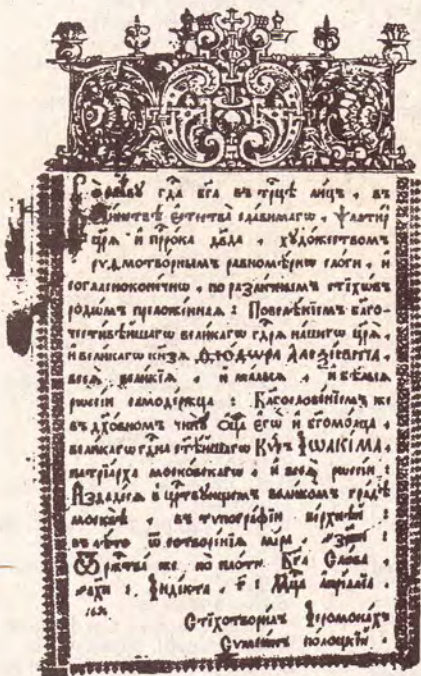 славу гд҃а бг҃а въ трⷪ҇цѣ лиц̾ , въ
единствѣ естества славимагѡ , ѱалтирь
цр҃ѧ и прⷪ҇рока дв҃да , хꙋдожествомъ
риѳмотворнымъ равномѣрнѡ слоги , и
согласноконечнѡ , по различнымъ стїхѡвъ
родѡмъ преложеннаѧ : Повелѣнїемъ благо-
честивѣйшагѡ великагѡ гдрⷭ҇ѧ нашегѡ цр҃ѧ ,
и великагѡ кнѧзѧ ѲЕОДѠРА АЛЕѮЇЕВИЧА ,
всеѧ великїѧ , и малыѧ , и бѣлыѧ
рѡссїи самодержца : Благословенїемъ же
въ дх҃овномъ чинꙋ ѻц҃а єгѡ и бг҃омолца ,
великагѡ гдⷭ҇на свѧтѣйшагѡ Кѵ́ръ ІѠАКІМА ,
патрїарха московскагѡ , и всеѧ рѡссїи :
Издадесѧ в цр҃ствꙋющемъ великомъ градѣ
москвѣ , въ тѵпографїи верхнѣй :
въ лѣто ѿ сотворенїѧ мїра , ҂зрпи :
Ѿ рж҃тва же по плоти Бг҃а Слова ,
҂ахп : Їндїкта , г҃ : Мцⷭ҇а апрїллїа ,
Стїхотворилъ Іеромонахъ
Сѵмеѡнъ полоцкїй .